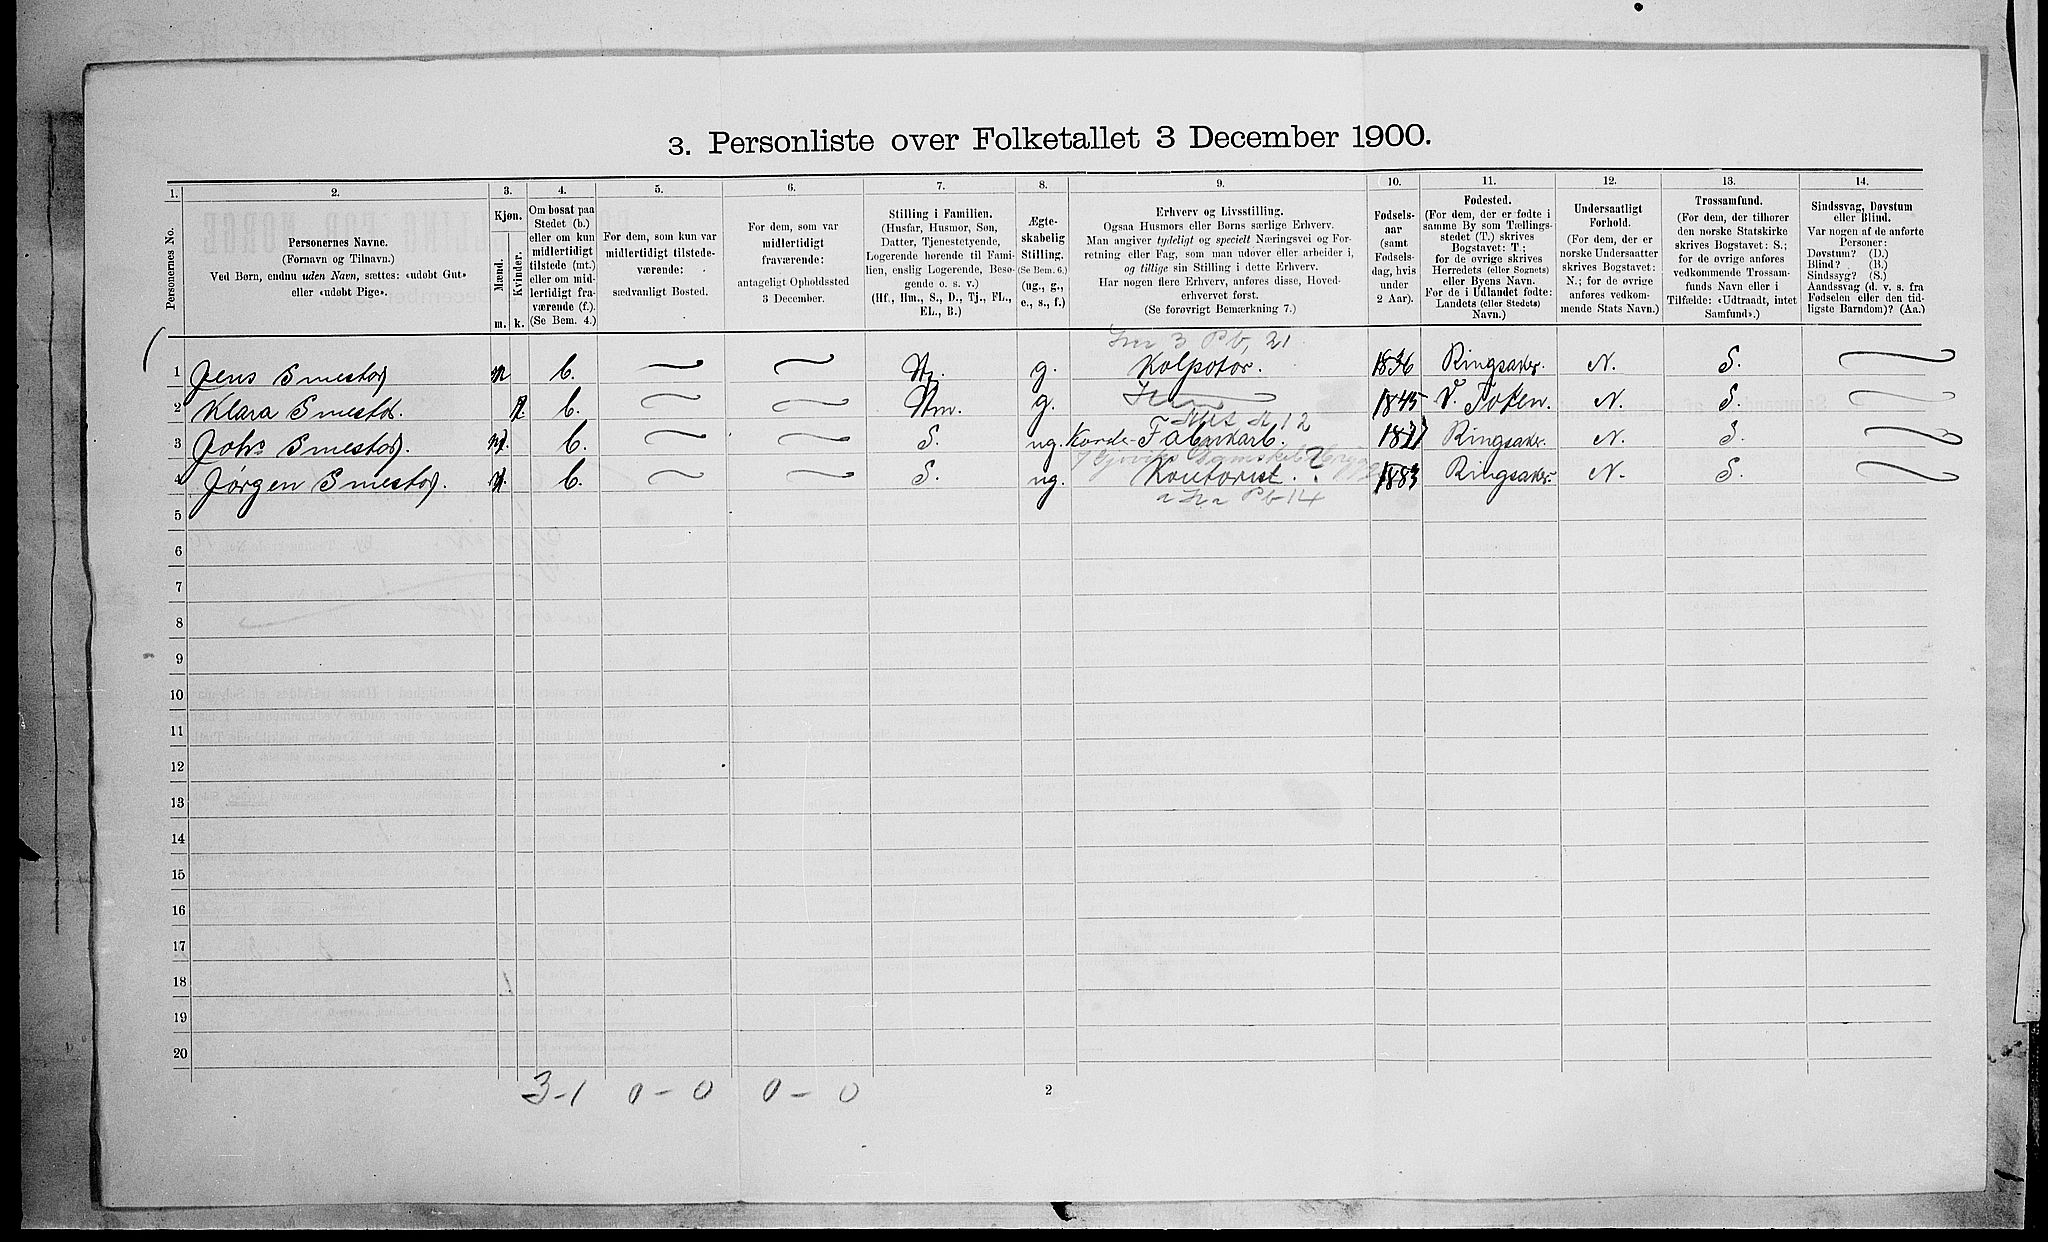 3. Personliste over Folketallet 3 December 1900.
1. 2. 3. 4. 5. 6. 7. 8. 9. 10. 11. 12. 13. 14.
Personernes No.
Personernes Navne.
(Fornavn og Tilnavn.)
Ved Børn, endnu uden Navn, sættes: «udøbt Gut»
eller «udøbt Pige».
Kjøn.
Mænd.
Kvinder.
m. k.
Om bosat paa
Stedet (b.)
eller om kun
midlertidigt
tilstede (mt.)
eller om mid-
lertidigt fra-
værende (f.).
(Se Bem. 4.)
For dem, som kun var
midlertidigt tilstede-
værende:
sædvanligt Bosted.
For dem, som var
midlertidigt
fraværende:
antageligt Opholdssted
3 December.
Stilling i Familien.
(Husfar, Husmor, Søn,
Datter, Tjenestetyende,
Logerende hørende til Fami-
lien, enslig Logerende, Besø-
gende o. s. v.)
(Hf., Hm., S., D., Tj., FL.,
EL., B.)
Ægte-
skabelig
Stilling.
(Se Bem. 6.)
(ug., g.,
e., s., f.)
Erhverv og Livsstilling.
Ogsaa Husmors eller Børns særlige Erhverv.
Man angiver tydeligt og specielt Næringsvei og For-
retning eller Fag, som man udøver eller arbeider i,
og tillige sin Stilling i dette Erhverv.
Har nogen flere Erhverv, anføres disse, Hoved-
erhvervet først.
(Se forøvrigt Bemærkning 7.)
Fødsels-
aar
(samt
Fødsels-
dag, hvis
under
2 Aar).
Fødested.
(For dem, der er fødte i
samme By som Tællings-
stedet (T.) skrives
Bogstavet: T.;
for de øvrige skrives
Herredets (eller Sognets)
eller Byens Navn.
For de i Udlandet fødte:
Landets (eller Stedets)
Navn.)
Undersaatligt
Forhold.
(For dem, der er
norske Undersaatter
skrives Bogstavet:
N.; for de øvrige
anføres vedkom-
mende Stats Navn.)
Trossamfund.
(For dem, der tilhører
den norske Statskirke
skrives Bogstavet: S.;
for de øvrige anføres
vedkommende Trossam-
funds Navn eller i
Tilfælde: «Udtraadt, intet
Samfund».)
Sindssvag, Døvstum
eller Blind.
Var nogen af de anførte
Personer:
Døvstum? (D.)
Blind? (B.)
Sindssyg? (S.)
Aandssvag (d. v. s. fra
Fødselen eller den tid-
ligste Barndom)? (Aa.)
3 Pb, 21
1 Jens Smestad m b. g. Kolpotør. 1836 Ringsaker. N. S.
2 Klara Smestad. k b. Hm. g. 1845 V. Toten. N. S.
12
3 Johs Smestad. m b. S. ug. 18 Ringsaker. N. S.
4 Jørgen Smestad. m. b. S. ug. Kontorist. 1883 Ringsaker. N. S.
Pb 14
5
6
7
8
9
10
11
12
13
14
15
16
17
18
19
20
3-1 0-0 0-0
2